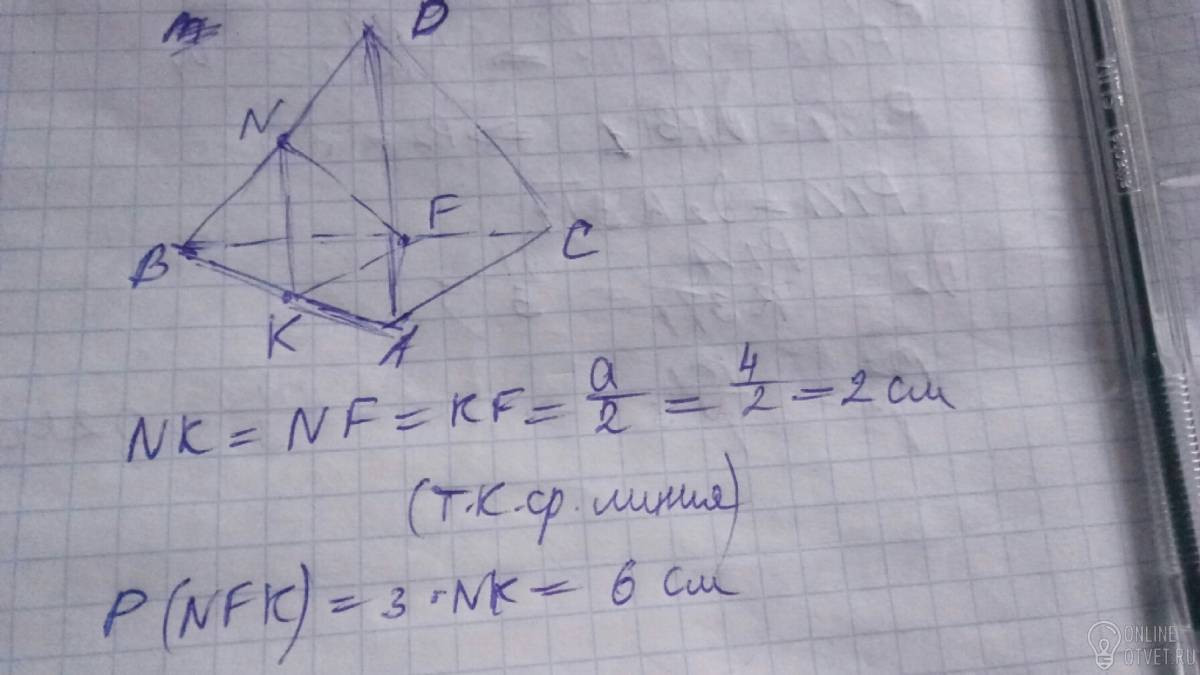 D
N
F
B
C
K
A
NK = NF = KF = a/2 = 4/2 = 2 см
(т.к. ср. линия)
P(NFK) = 3 · NK = 6 см
ONLINE
OTVET.RU